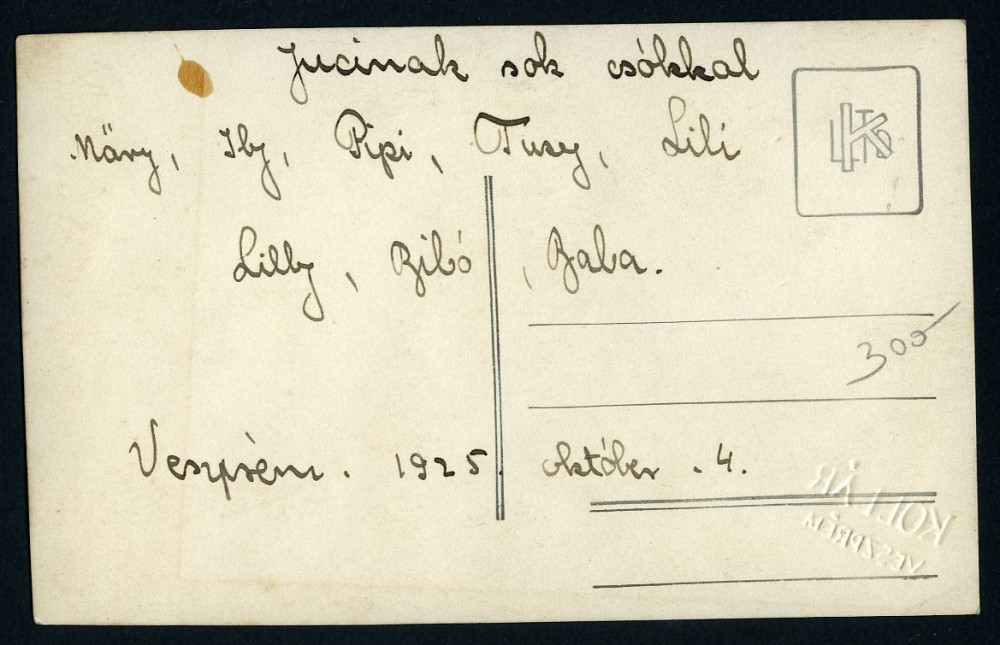 Jucinak sok csókkal
Máry, Iby, Pipi, Tusy, Lili
Lilly, Bibó, Baba.
300
Veszprém. 1925. október .4.
KOLLÁR
VESZPRÉM